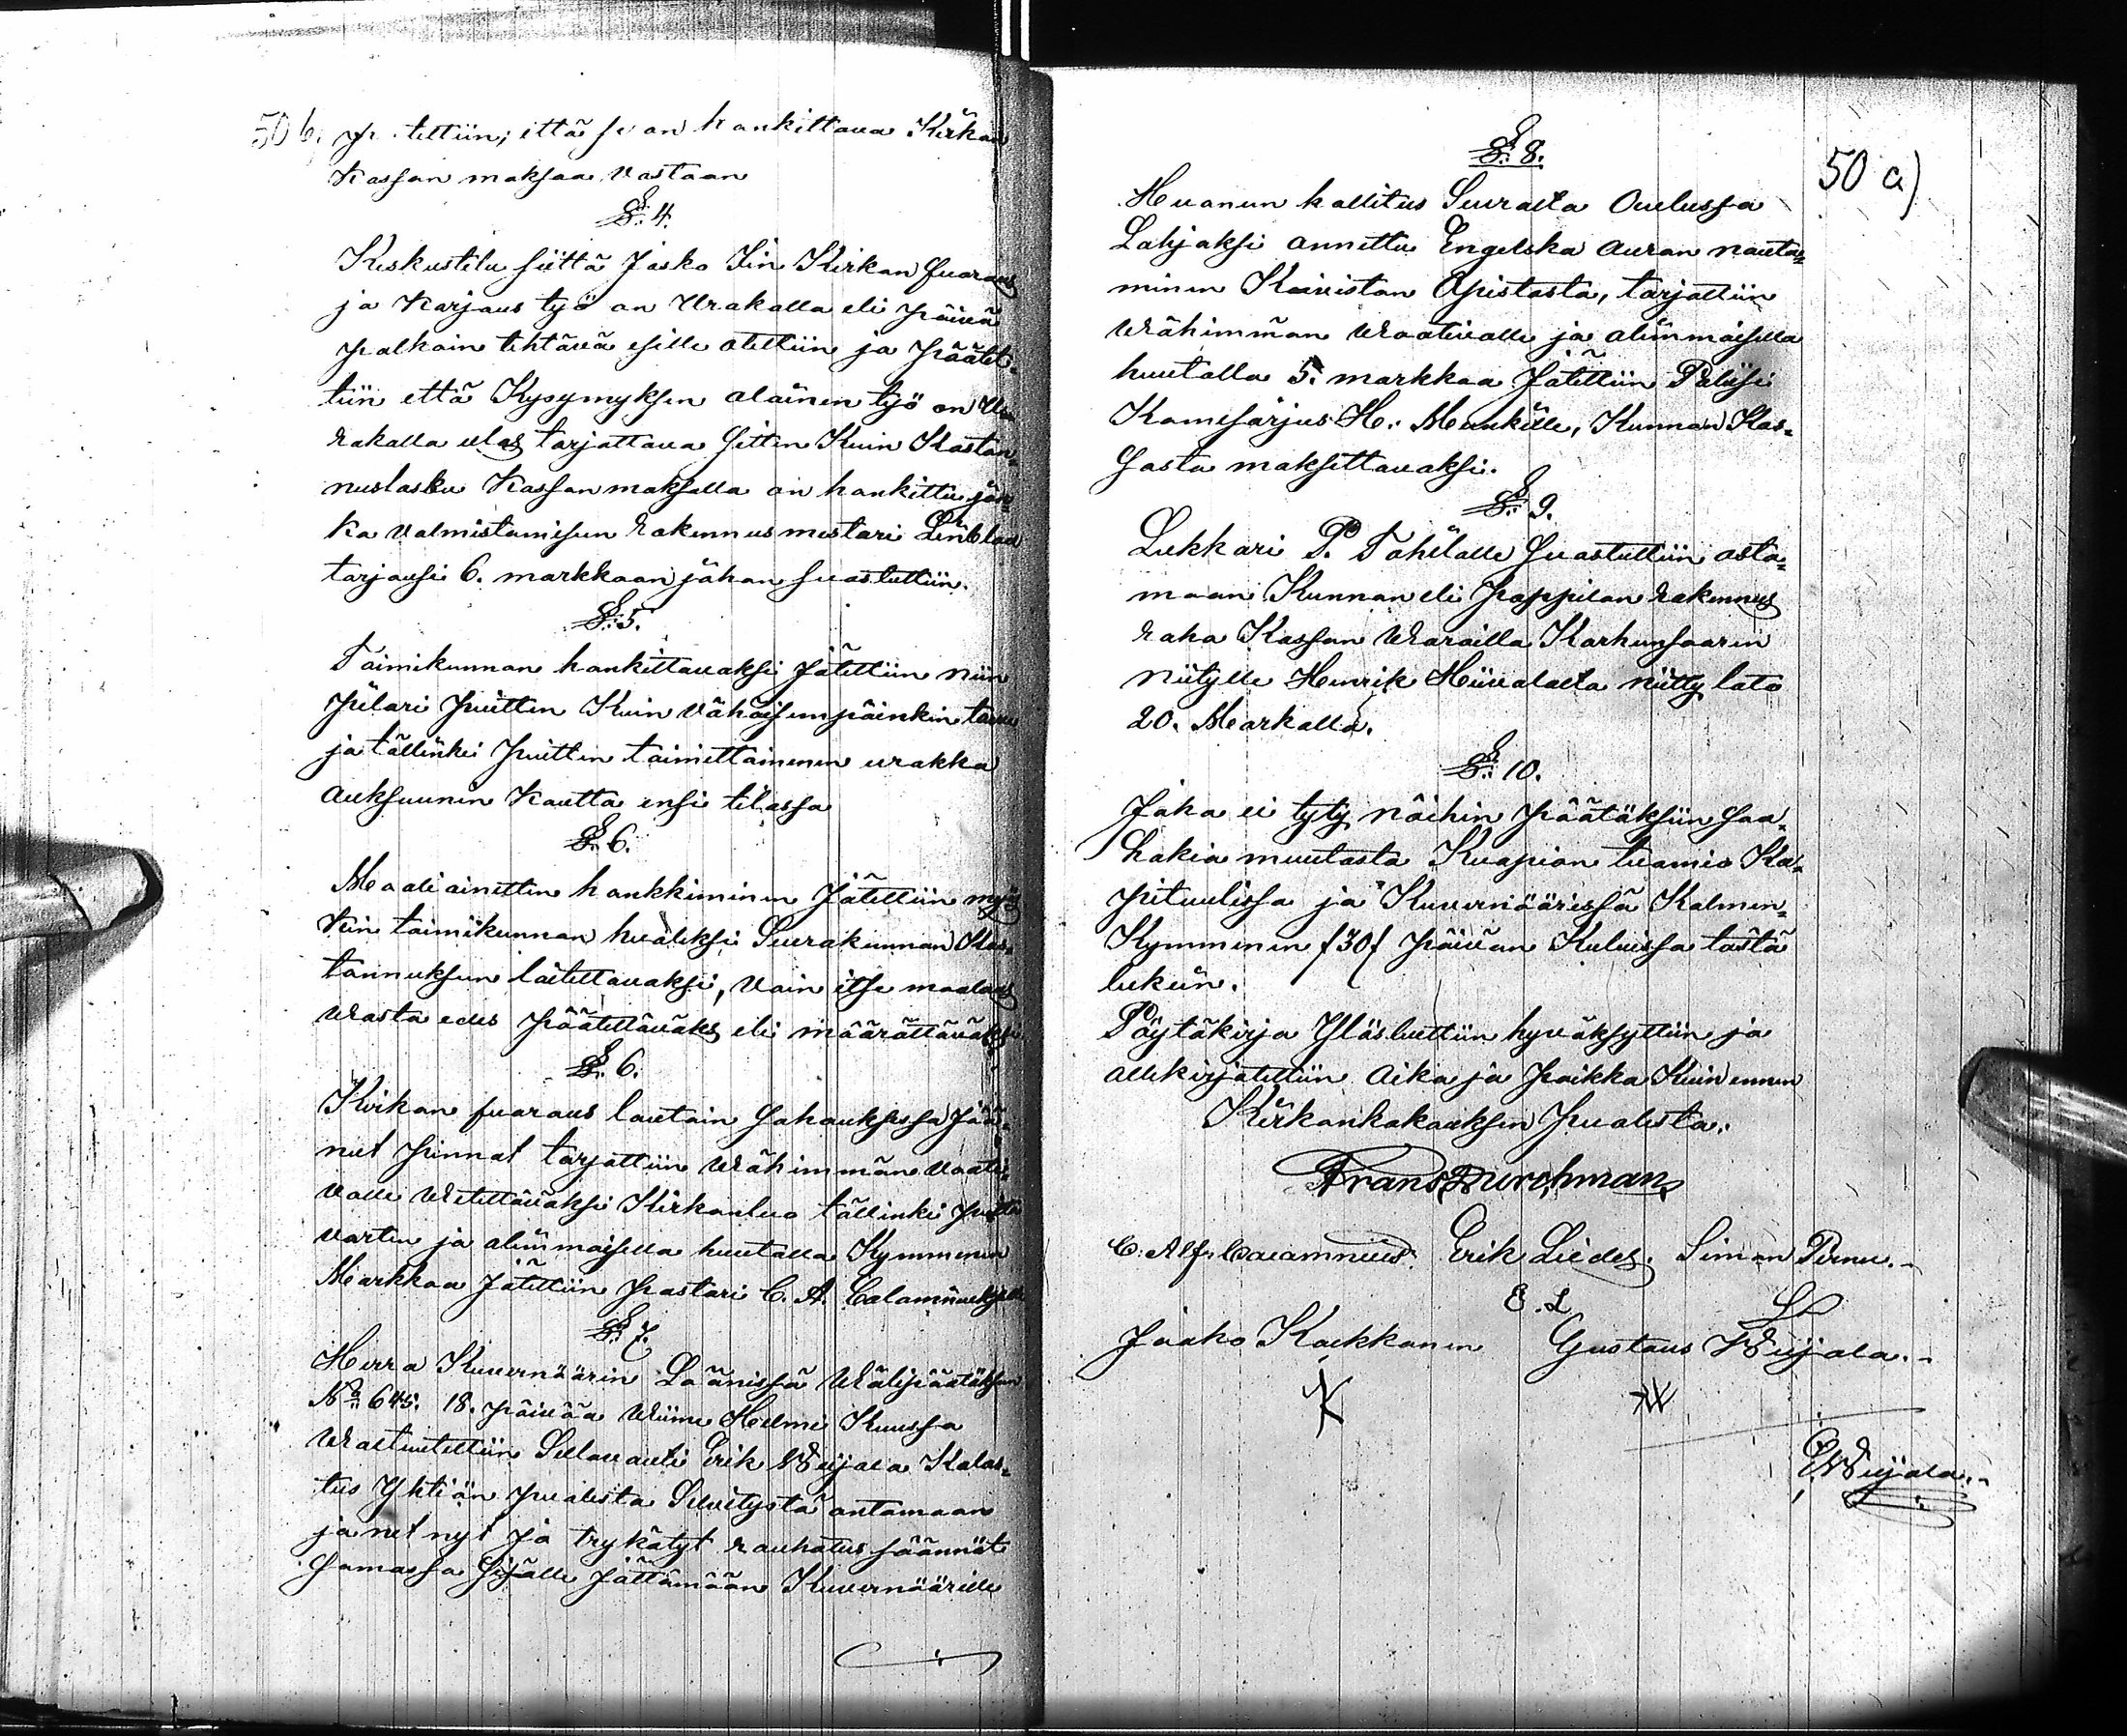 50 b.
että se on hankittava Kirkon
Kassan maksaa vastaan
§. 4.
Keskustelu siittä Josko Iin Kirkon fuoraus
ja Korjaus työ on Urakalla eli päivä
palkoin tehtävä esille otettiin ja päätet„
tiin että Kysymyksen alainen työ on U„
rakalla ulos tarjottava sitten Kuin Kostan„
nuslasku Kassan maksulla on hankittu jon„
ka valmistamisen Rakennusmestari Linblad
tarjousi 6. markkaan johon suostuttiin.
§. 5.
Toimikunnan hankittavaksi jätettiin niin
Pilari puitten Kuin vähäisempäinkin
ja tällinki puitten toimittaminen urakka
auksuunin Kautta ensi tilassa
§. 6.
Maali ainetten hankkiminen jätettiin myös
kin toimikunnan huoleksi Seurakunnan Kus„
tannuksen laitettavaksi, vain itse maalaus
Vasta edes päätettäväks eli määrättäväksi
§. 6.
Kirkon fuoraus lautain Sahauksessa jää„
net pinnat tarjottiin Vähimmän vaati„
valle Vetettäväksi Kirkonluo tällinki puita
varten ja alimmaisella huutalla Kymmenen
Markkaa jätettiin pastori C. A. Calamniukselle
§. 7.
Herra Kuvernöörin Läänissä Välipäätöksen
No 645. 18. päivää Viime Helmi Kuussa
Valtuutettiin Erik Wuijala Kalas„
tus Yhtiön puolesta Selvitystä antamaan
ja net nyt jo trykätyt rauhotus säännöt
Samassa Sisälle jättämään Kuvernöörille
50 a)
§. 8.
Huonen hallitus Seuralta Oulussa
Lahjaksi annettu Engelska auran nouta„
minen Koiviston Opistosta, tarjottiin
Vähimmän Vaativalle ja alimmaisella
huutalla 5. markkaa jätettiin Paliisi
Komisarjus H. Munkille, Kunnan Kas„
sasta maksettavaksi.
§. 9.
Lukkari P. Tahilalle Suostuttiin osta„
maan Kunnan eli Pappilan Rakennus
Raha Kassan Varoilla Karhunsaaren
niitylle Henrik Hiivalalta niitty lato
20. Markalla.
§. 10.
Joka ei tyty näihin päätöksiin saa
hakia muutosta Kuopion tuomio Ka„
pituulissa ja Kuvernöörissä Kolmen„
Kymmenen /30/ päivän Kuluissa tästä
lukein.
Pöytäkirja Ylösluettiin hyväksyttiin ja
allekirjotettiin Aika ja paikka Kuin ennen
Kirkonkokouksen puolesta.
Frans Durchman
C. Alf. Calamnius. Erik Liedes. Simon Pernu.
E. L
Jaako Kaekkonen Gustaus Wuijala.
K W
E Wuijala.